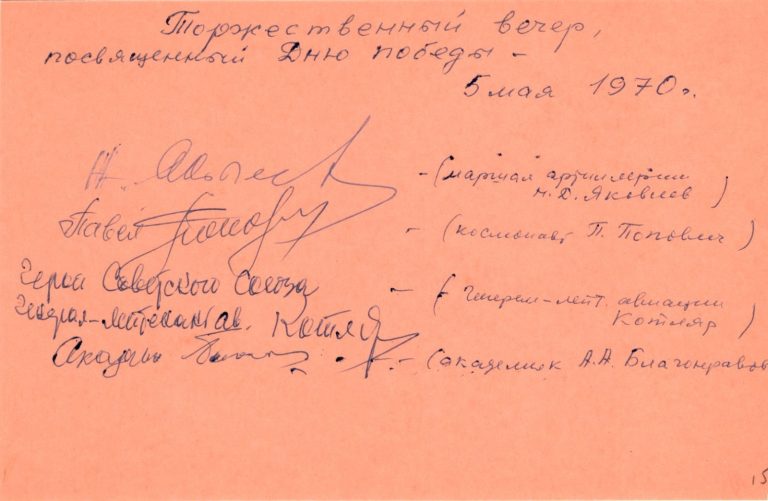 Торжественный вечер,
посвященный Дню победы –
5 мая 1970 г.
– (маршал артиллерии
Н. Д. Яковлев)
Павел Попович – (космонавт П. Попович)
Герой Советского Союза – (генерал-лейт. авиации
Генерал-лейтенант ав. Котляр Котляр)
Академик – (академик А.А. Благонравов
15